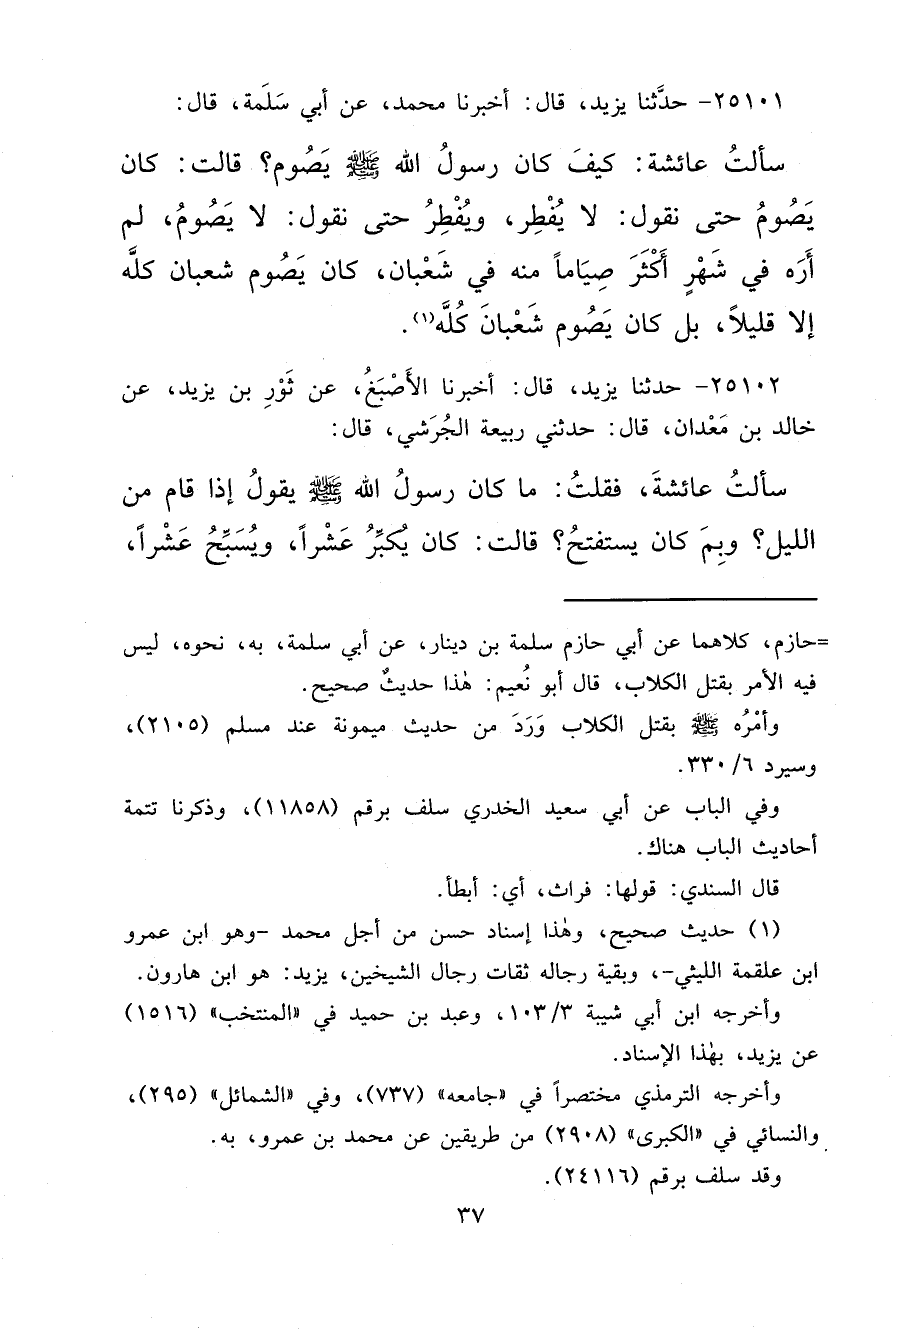 ٢٥١٠١- حدَّثنا يزيد، قال: أخبرنا محمد، عن أبي سَلَمة، قال:
سألتُ عائشة: كيفَ كان رسولُ الله ﷺ يَصُوم؟ قالت: كان
يَصُومُ حتى نقول: لا يُفْطِر، ويُفْطِرُ حتى نقول: لا يَصُومُ، لم
أَرَه في شَهْرٍ أَكْثَرَ صِيَاماً منه في شَعْبان، كان يَصُوم شعبان كلَّه
إلا قليلاً، بل كان يَصُوم شَعْبانَ كُلَّه(١).
٢٥١٠٢- حدثنا يزيد، قال: أخبرنا الأَصْبَغُ، عن ثَوْرِ بن يزيد، عن
خالد بن مَعْدان، قال: حدثني ربيعة الجُرَشي، قال:
سألتُ عائشةَ، فقلتُ: ما كان رسولُ الله ﷺ يقولُ إذا قام من
الليل؟ وبِمَ كان يستفتحُ؟ قالت: كان يُكبِّرُ عَشْراً، ويُسَبِّحُ عَشْراً،
=حازم، كلاهما عن أبي حازم سلمة بن دينار، عن أبي سلمة، به، نحوه، ليس
فيه الأمر بقتل الكلاب، قال أبو نُعيم: هٰذا حديثٌ صحيح.
وأمْرُه ﷺ بقتل الكلاب وَرَدَ من حديث ميمونة عند مسلم (٢١٠٥)،
وسيرد ٦/ ٣٣٠.
وفي الباب عن أبي سعيد الخدري سلف برقم (١١٨٥٨)، وذكرنا تتمة
أحاديث الباب هناك.
قال السندي: قولها: فراث، أي: أبطأ.
(١) حديث صحيح، وهٰذا إسناد حسن من أجل محمد -وهو ابن عمرو
ابن علقمة الليثي-، وبقية رجاله ثقات رجال الشيخين، يزيد: هو ابن هارون.
وأخرجه ابن أبي شيبة ٣/ ١٠٣، وعبد بن حميد في «المنتخب» (١٥١٦)
عن يزيد، بهٰذا الإسناد.
وأخرجه الترمذي مختصراً في «جامعه» (٧٣٧)، وفي «الشمائل» (٢٩٥)،
والنسائي في «الكبرى» (٢٩٠٨) من طريقين عن محمد بن عمرو، به.
وقد سلف برقم (٢٤١١٦).
٣٧